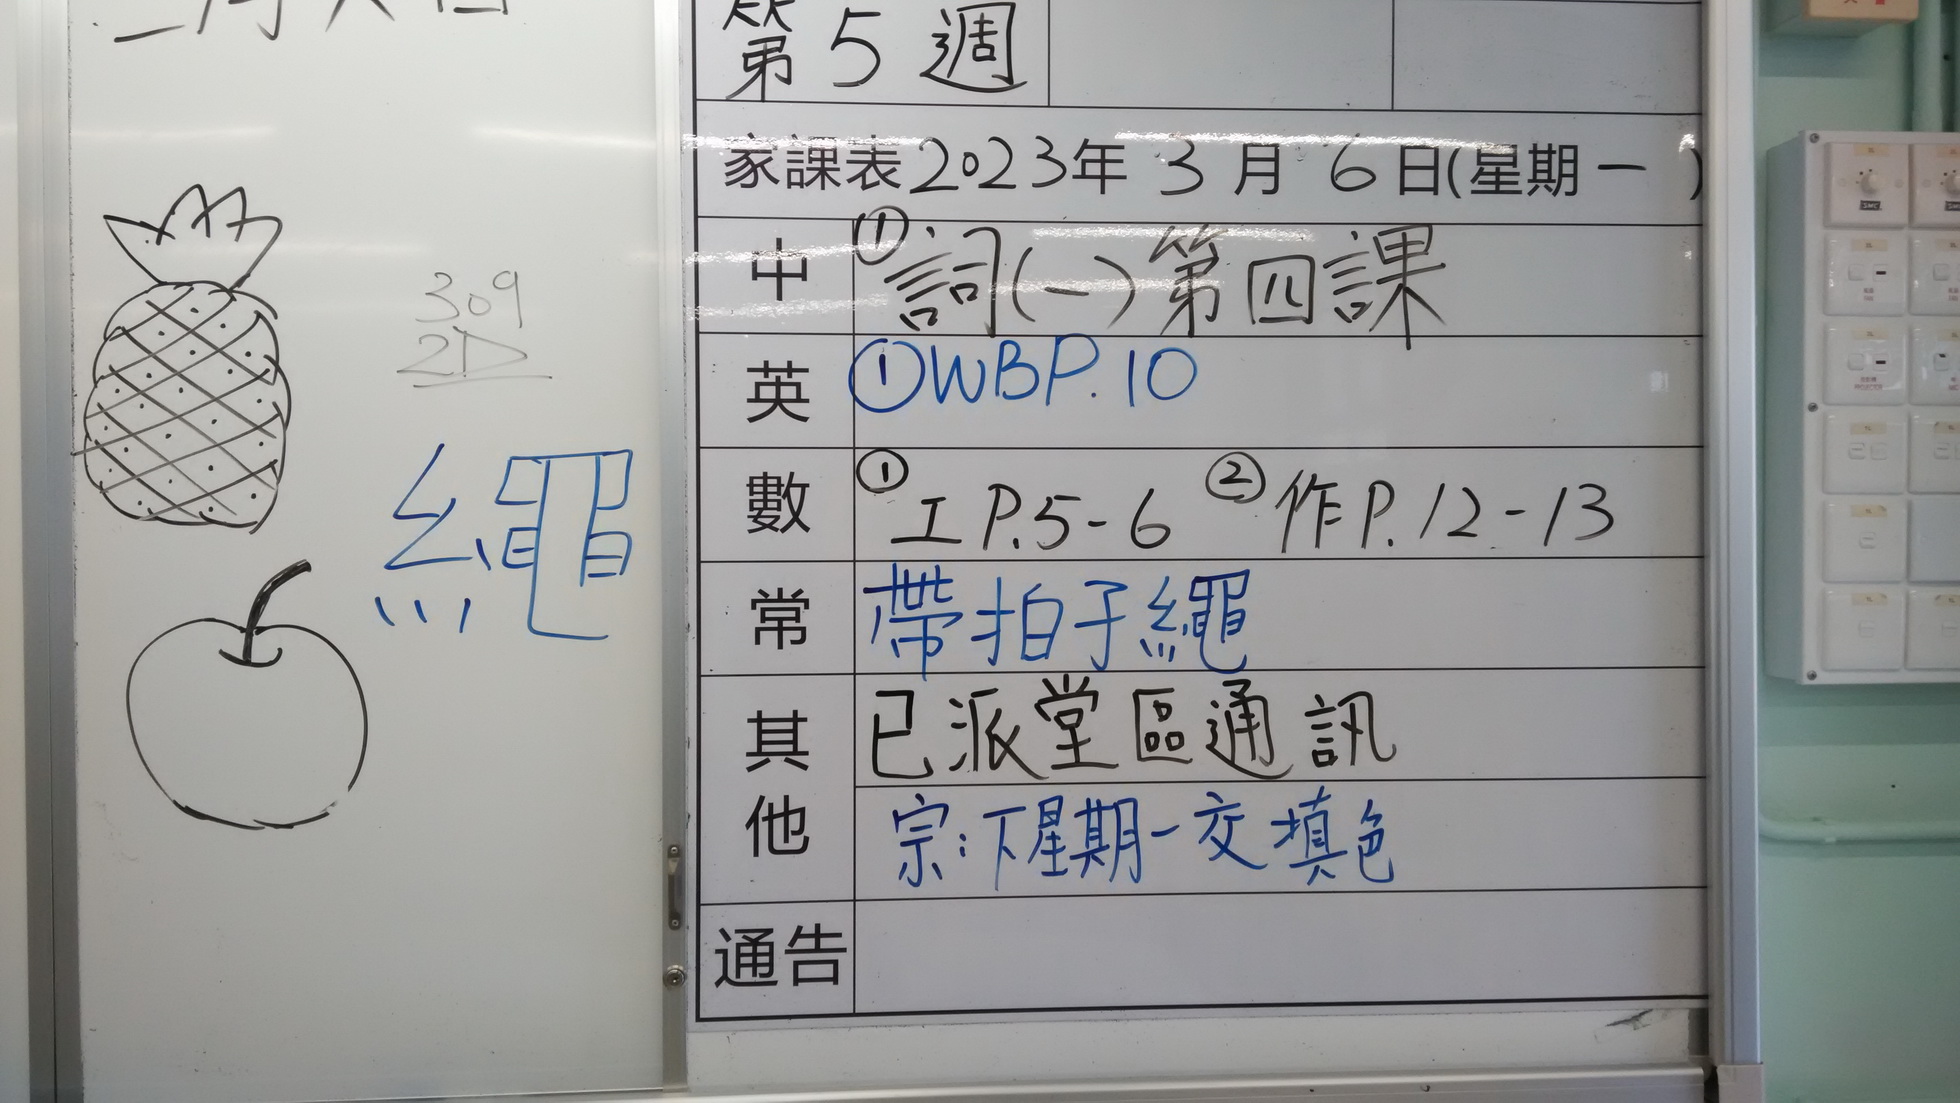 309
2D
繩
第5週
家課表2023年3月6日(星期一)
中 ①詞(一)第四課
英 ①WBP.10
數 ①工P.5-6 ②作P.12-13
常 帶拍子繩
其他 已派堂區通訊
宗:下星期一交填色
通告